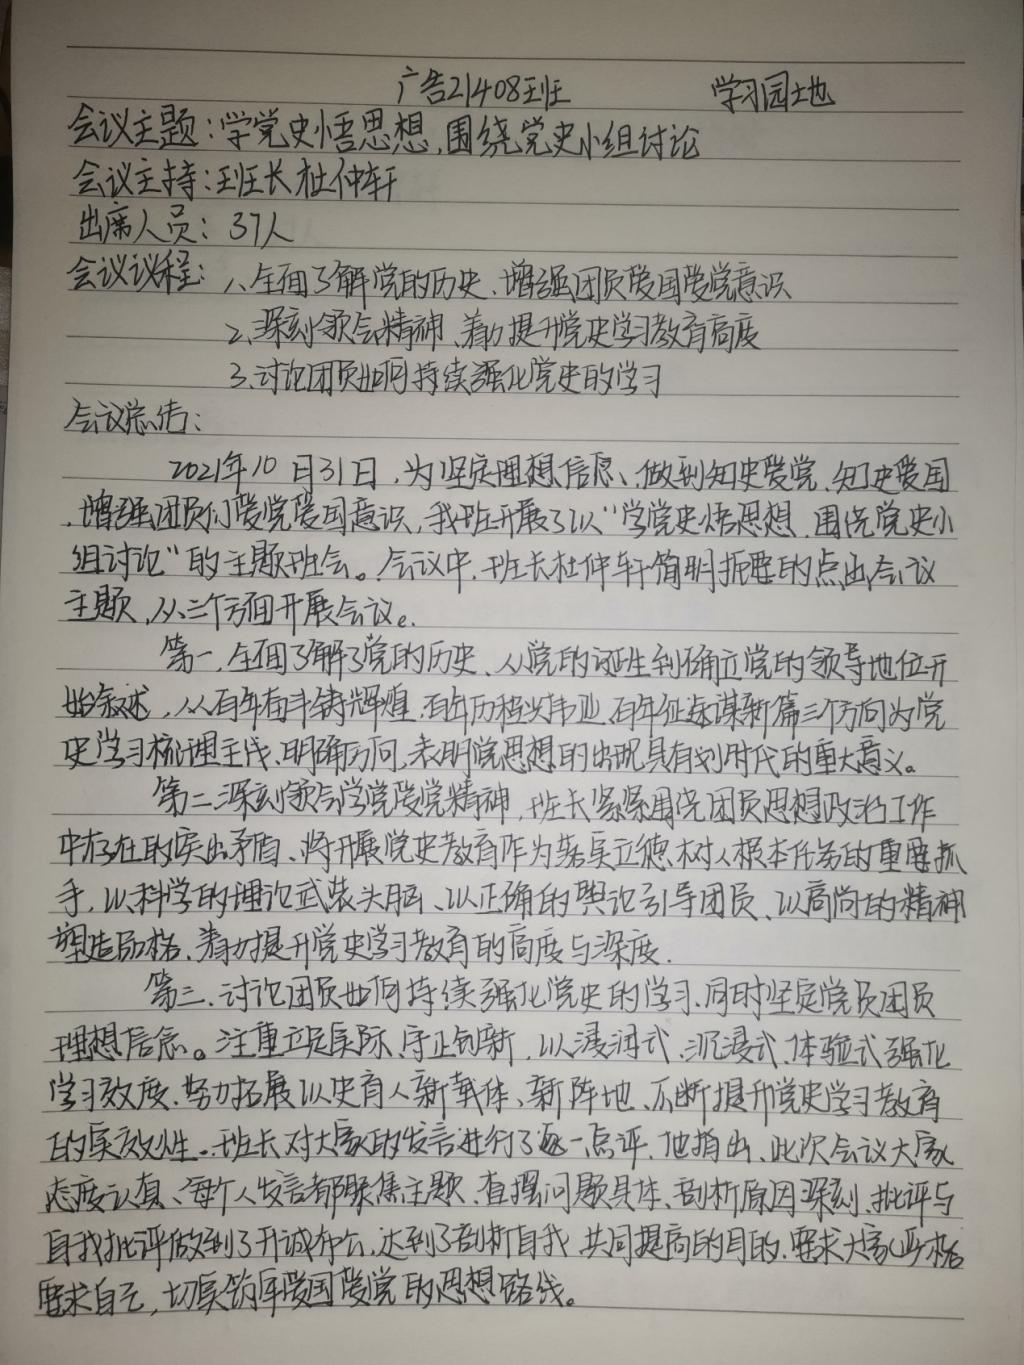 广告21408班 学习园地
会议主题:学党史悟思想,围绕党史小组讨论
会议主持:班长杜仲轩
出席人员:37人
会议议程:1、全面了解党的历史、增强团员爱国爱党意识
2、深刻领会精神、着力提升党史学习教育高度
3、讨论团员如何持续强化党史的学习
会议总结:
2021年10月31日,为坚定理想信念、做到知史爱党、知史爱国
,增强团员们爱党爱国意识,我班开展了以“学党史悟思想,围绕党史小
组讨论”的主题班会。会议中,班长杜仲轩简明扼要的点出会议
主题,从三个方面开展会议。
第一、全面了解了党的历史、从党的诞生到确立党的领导地位开
始叙述,从百年奋斗铸辉煌,百年历程兴伟业,百年征途谋新篇三个方向为党
史学习梳理主线、明确方向,表明党思想的出现具有划时代的重大意义。
第二、深刻领会学党爱党精神,班长紧紧围绕团员思想政治工作
中存在的突出矛盾、将开展党史教育作为落实立德树人根本任务的重要抓
手,以科学的理论武装头脑、以正确的舆论引导团员、以高尚的精神
塑造品格、着力提升党史学习教育的高度与深度.
第三、讨论团员如何持续强化党史的学习、同时坚定党员团员
理想信念。注重立足实际、守正创新,以浸润式、沉浸式、体验式强化
学习效度、努力拓展以史育人新载体、新阵地、不断提升党史学习教育
的实效性。班长对大家的发言进行了逐一点评,他指出、此次会议大家
态度认真、每个人发言都聚焦主题、查摆问题具体、剖析原因深刻、批评与
自我批评做到了开诚布公,达到了剖析自我、共同提高的目的,要求大家严格
要求自己,切实筑牢爱国爱党的思想路线。